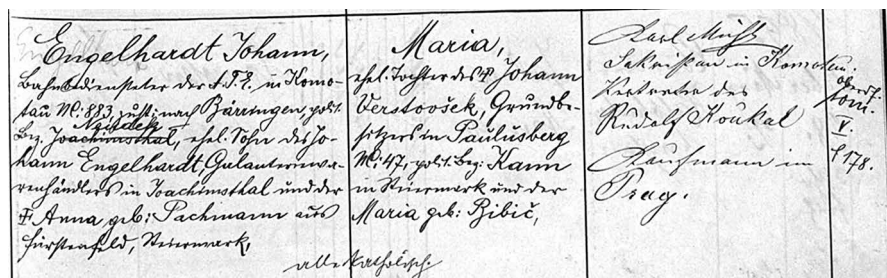 Engelhardt Johann,
Bahnbediensteter der A.T.E. in Komo-
tau N: 883, zust: nach Bärringen, polit.
Neudek
Bez. Joachimsthal, ehel. Sohn des Jo-
hann Engelhardt, Galanteriewa-
renhändlers in Joachimsthal und der
† Anna, geb: Pachmann aus
Fürstenfeld, Steiermark,
Maria,
ehel. Tochter des † Johann
Verstovšek, Grundbe-
sitzers in Paulusberg
N: 47, polit. Bez: Rann
in Steiermark und der
Maria geb: Bibič,
alle katholisch
Karl
in Komotau
Vertreter des
Rudolf Koukal
Kaufmann in
Prag.
V.
f 178.